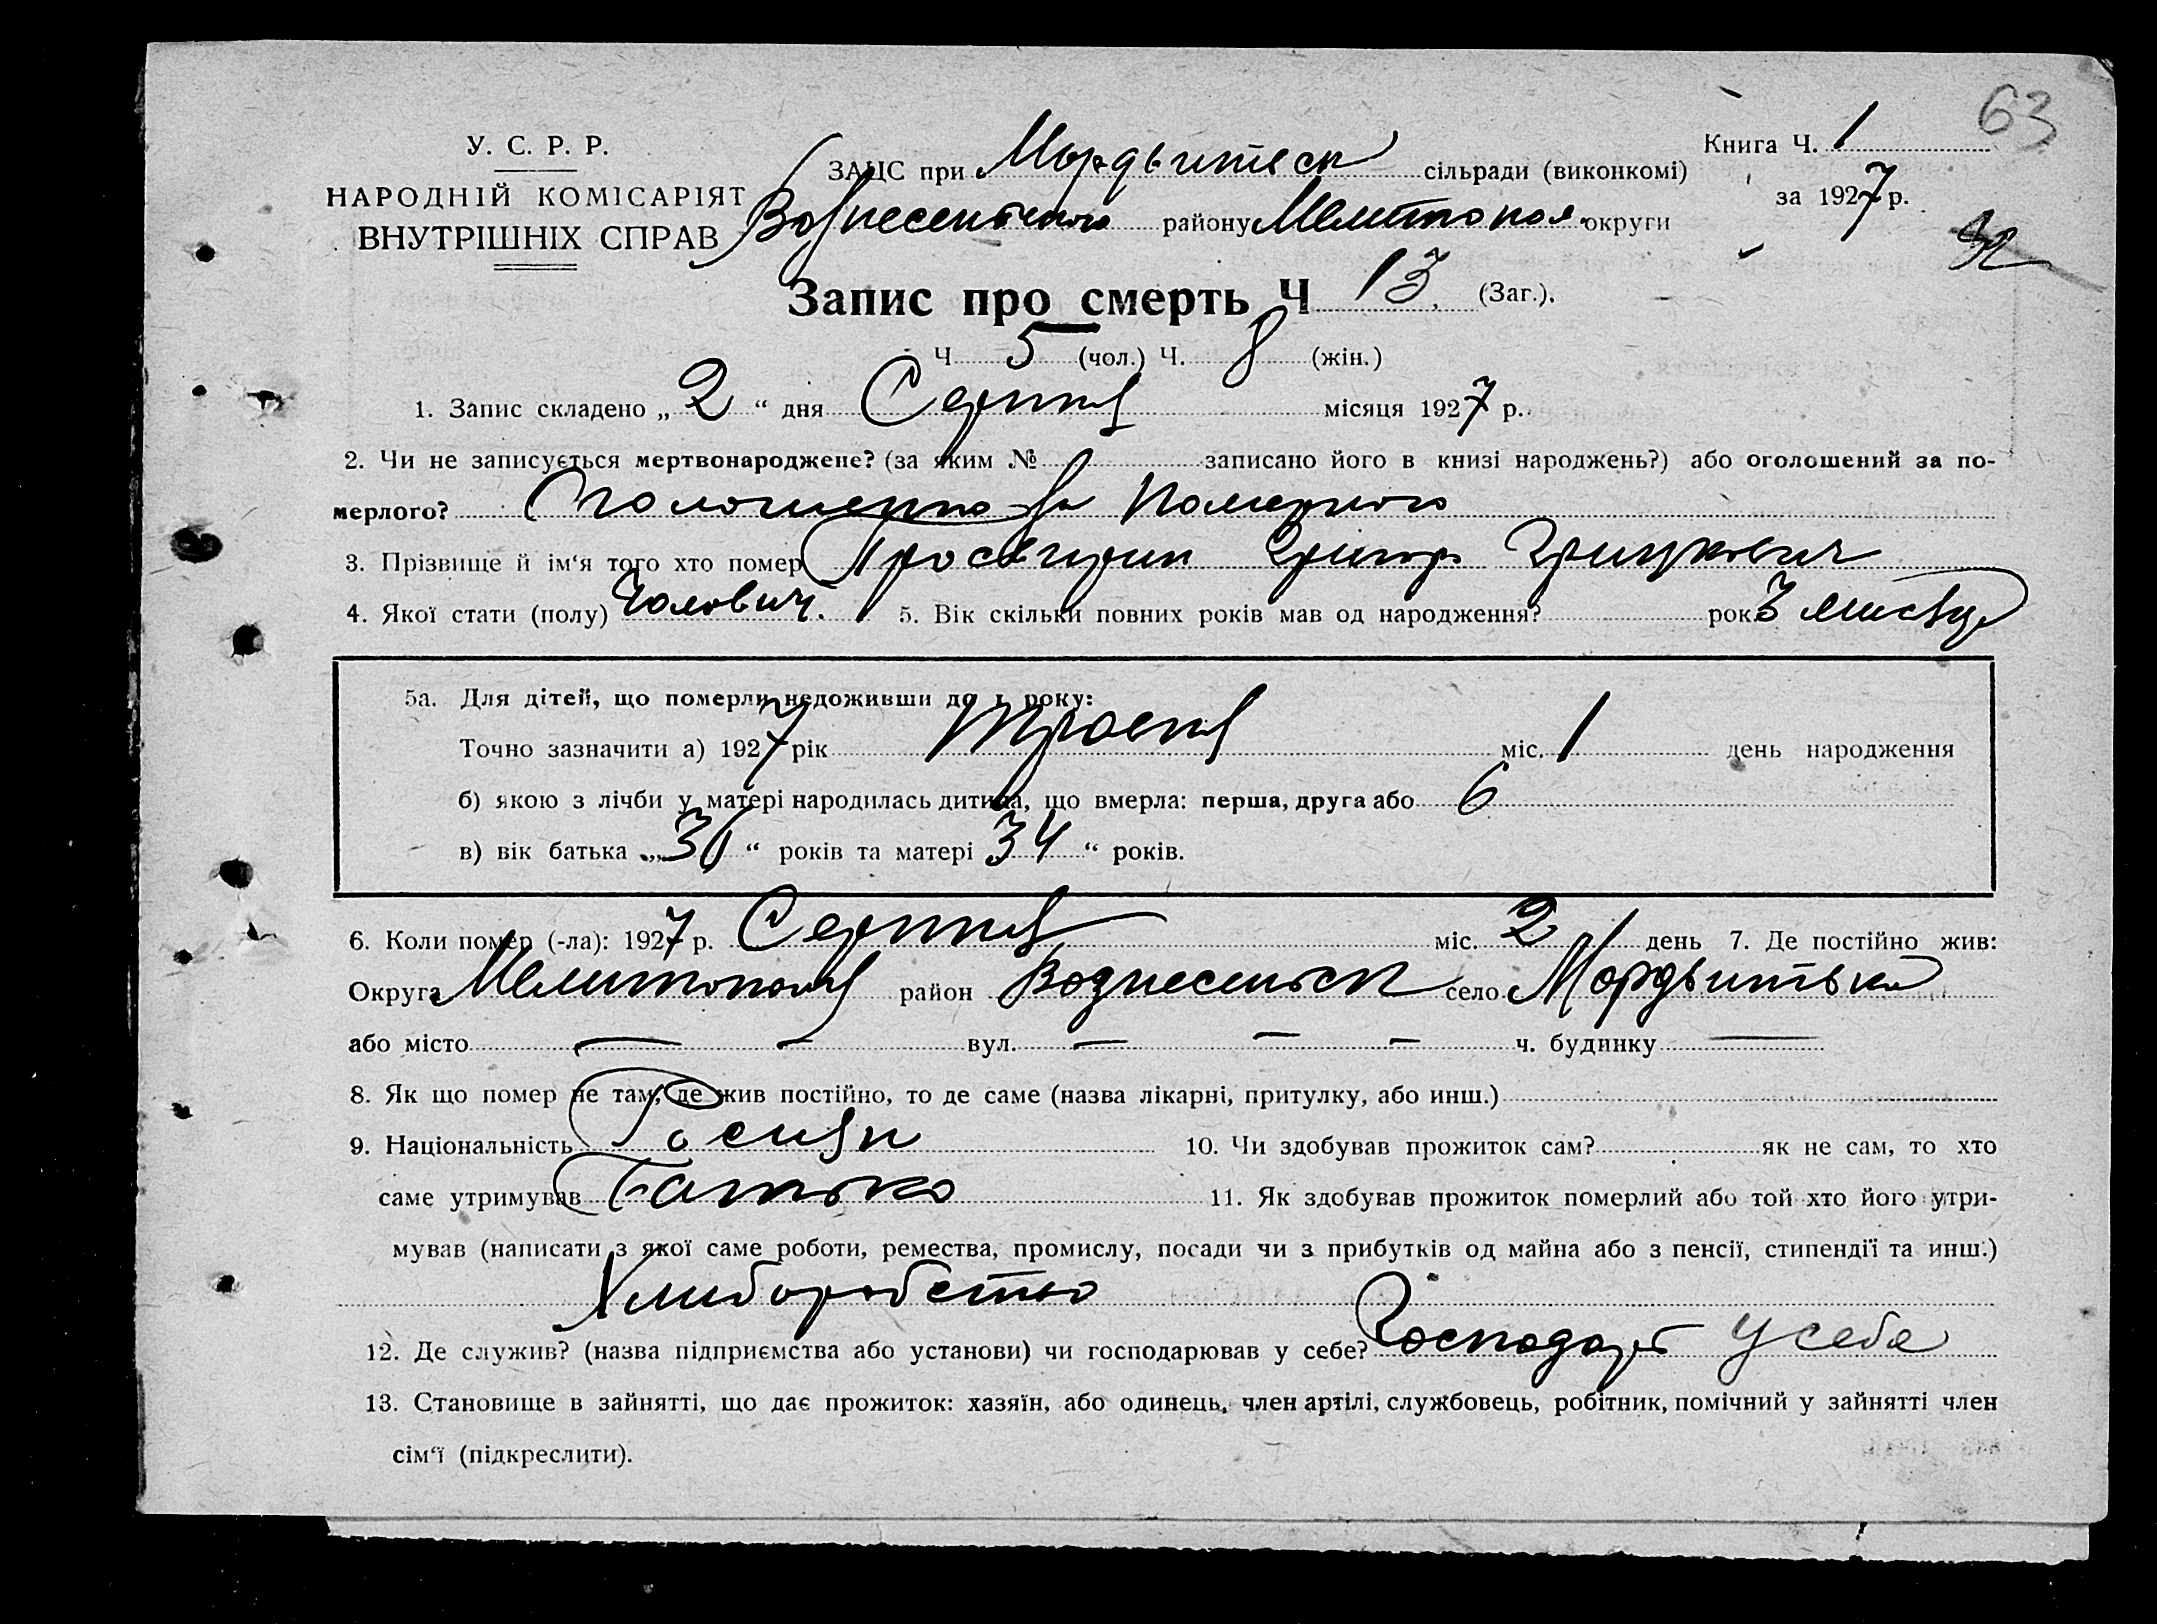 63
У. С. Р. Р.
НАРОДНІЙ КОМІСАРІЯТ
ВНУТРІШНІХ СПРАВ
ЗАЦС при Мордвинівск сільради (виконкомі)
Вознесенського району Мелитопол. округи
Книга Ч. 1
за 1927 р.
32
Запис про смерть Ч 13. (Заг.).
Ч 5 (чол.) Ч. 8 (жін.)
1. Запис складено „ 2 “ дня Серпня місяця 1927 р.
2. Чи не записується мертвонароджене? (за яким № записано його в книзі народжень?) або оголошений за по-
мерлого? Оголошенно за Померлого
3. Прізвище й ім'я того хто помер Просвирин Григор Грицкович
4. Якої стати (полу) Чоловіч. 5. Вік скільки повних років мав од народження? рок. 3 мисяця
5а. Для дітей, що померли недоживши до 1 року:
Точно зазначити а) 1927 рік Травня міс. 1 день народження
б) якою з лічби у матері народилась дитина, що вмерла: перша, друга або 6
в) вік батька „ 36 “ років та матері 34 “ років.
6. Коли помер (-ла): 1927 р. Серпня міс. 2 день 7. Де постійно жив:
Округа Мелитополя район Вознесенськ село Мордвинівка
або місто — — вул. — — — ч. будинку —
8. Як що помер не там, де жив постійно, то де саме (назва лікарні, притулку, або инш.)
9. Національність Росиян 10. Чи здобував прожиток сам? як не сам, то хто
саме утримував Батько 11. Як здобував прожиток померлий або той хто його утри-
мував (написати з якої саме роботи, ремества, промислу, посади чи з прибутків од майна або з пенсії, стипендії та инш.)
Хлиборобство
12. Де служив? (назва підприємства або установи) чи господарював у себе? Господар У себе
13. Становище в зайнятті, що дає прожиток: хазяїн, або одинець, член артілі, службовець, робітник, помічний у зайнятті член
сім'ї (підкреслити).